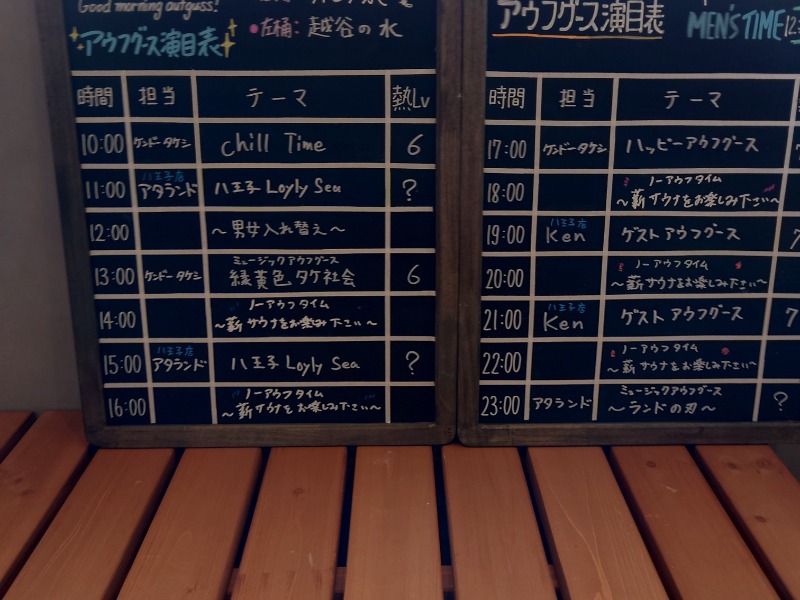 Good morning aufguss!
アウフグース演目表
左桶: 越谷の水
時間 担当 テーマ 熱Lv
10:00 ケンドータケシ chill Time 6
八王子店
11:00 アタランド 八王子 Loyly Sea ?
12:00 〜男女入れ替え〜
ミュージックアウフグース
13:00 ケンドータケシ 緑黄色タケ社会 6
ノーアウフタイム
14:00 〜薪サウナをお楽しみ下さい〜
八王子店
15:00 アタランド 八王子 Loyly Sea ?
ノーアウフタイム
16:00 〜薪サウナをお楽しみ下さい〜
アウフグース演目表
MEN'S TIME
時間 担当 テーマ
17:00 ケンドータケシ ハッピーアウフグース
ノーアウフタイム
18:00 〜薪サウナをお楽しみ下さい〜
八王子店
19:00 Ken ゲストアウフグース 7
ノーアウフタイム
20:00 〜薪サウナをお楽しみ下さい〜
八王子店
21:00 Ken ゲストアウフグース 7
ノーアウフタイム
22:00 〜薪サウナをお楽しみ下さい〜
ミュージックアウフグース
23:00 アタランド 〜ランドの刃〜 ?